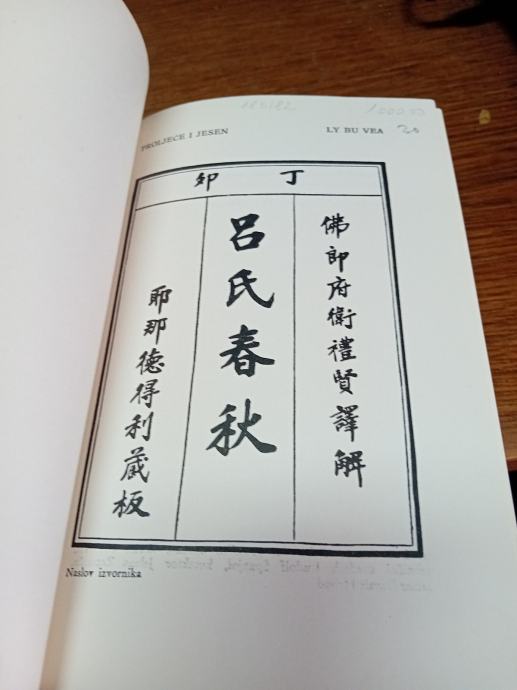 PROLJEĆE I JESEN
LY BU VEA
20
丁卯
佛郎府衛禮賢譯解
呂氏春秋
耶那德得利蔵板
Naslov izvornika